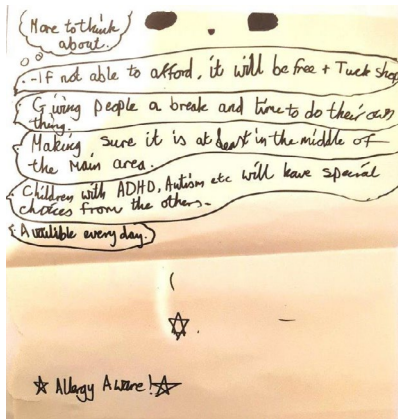 More to think
about.
--If not able to afford, it will be free + Tuck shop
Giving people a break and time to do their own
thing.
Making sure it is at least in the middle of
the main area.
Children with ADHD, Autism etc will have special
choices from the others.
Availible every day.
☆ Allergy Aware! ☆